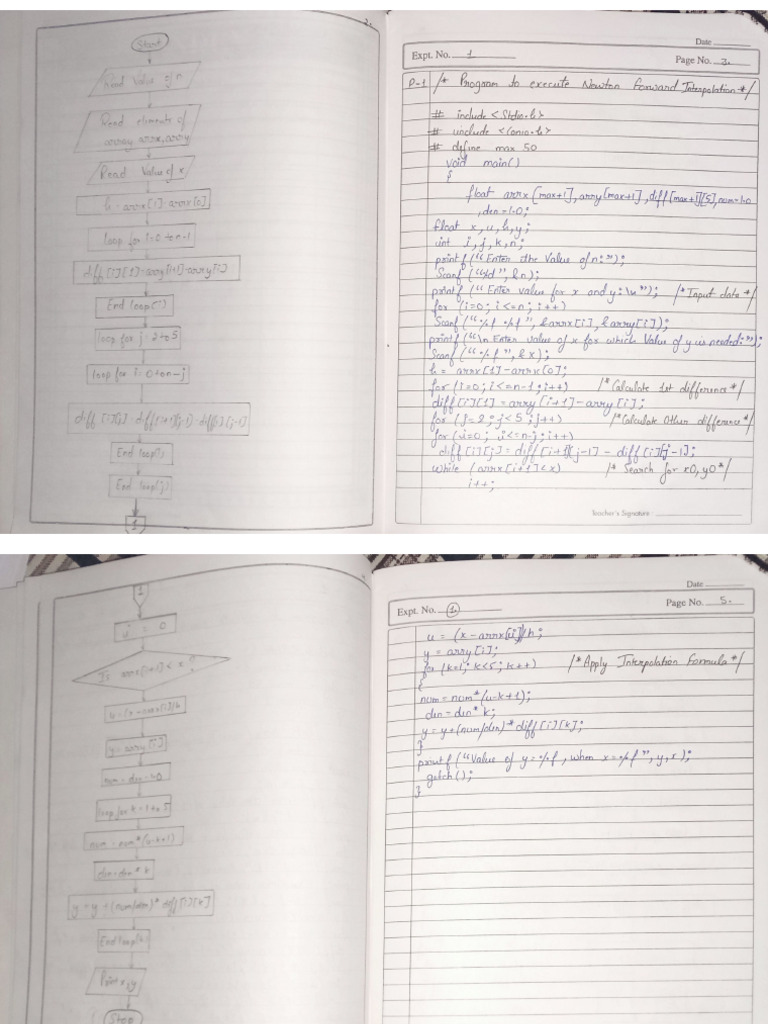 2.
Start
Read Value of n
Read elements of
array arrx, arry
Read Value of x
h = arrx[1] - arrx[0]
loop for i=0 to n-1
diff[i][1]=arry[i+1]-arry[i]
End loop(i)
loop for j = 2 to 5
loop for i=0 to n-j
diff [i][j] - diff[i+1][j-1] - diff[i][j-1]
End loop(i)
End loop(j)
1
Date
Expt. No. 1
Page No. 3.
P-1 /* Program to execute Newton Forward Interpolation */
# include <Stdio.h>
# include <Conio.h>
# define max 50
void main()
{
float arrx [max+1], arry[max+1], diff[max+1][5], num=1.0
, den=1.0;
float x, u, h, y;
int i, j, k, n;
printf("Enter the Value of n:");
Scanf ("%d", &n);
printf ("Enter value for x and y:\n"); /*Input data*/
for (i=0; i<=n; i++)
Scanf ("%f %f", &arrx[i], &arry[i]);
printf ("\n Enter value of x for which Value of y is needed:");
Scanf ("%f", &x);
h = arrx[1]-arrx[0];
for (i=0; i<=n-1; i++) /*Calculate 1st difference*/
diff[i][1]=arry[i+1]-arry[i];
for (j=2; j<5; j++) /*Calculate Other difference*/
for(i=0; i<=n-j; i++)
diff[i][j]=diff[i+1][j-1] - diff[i][j-1];
while (arrx[i+1]<x) /* Search for x0, y0*/
i++;
Teacher's Signature
1
i = 0
Is arrx[i+1] < x ?
u = (x - arrx[i])/h
y = arry[i]
num = den = 1.0
loop for k = 1 to 5
num = num*(u-k+1)
den = den * k
y = y + (num/den)* diff [i][k]
End loop(k)
Print x, y
Stop
Date
Expt. No. 1.
Page No. 5.
u = (x-arrx[i])/h;
y = arry[i];
for (k=1; k<5; k++) /*Apply Interpolation Formula*/
{
num=num*(u-k+1);
den=den* k;
y = y+(num/den)* diff[i][k];
}
printf ("Value of y=%f, when x=%f", y, x);
getch();
}